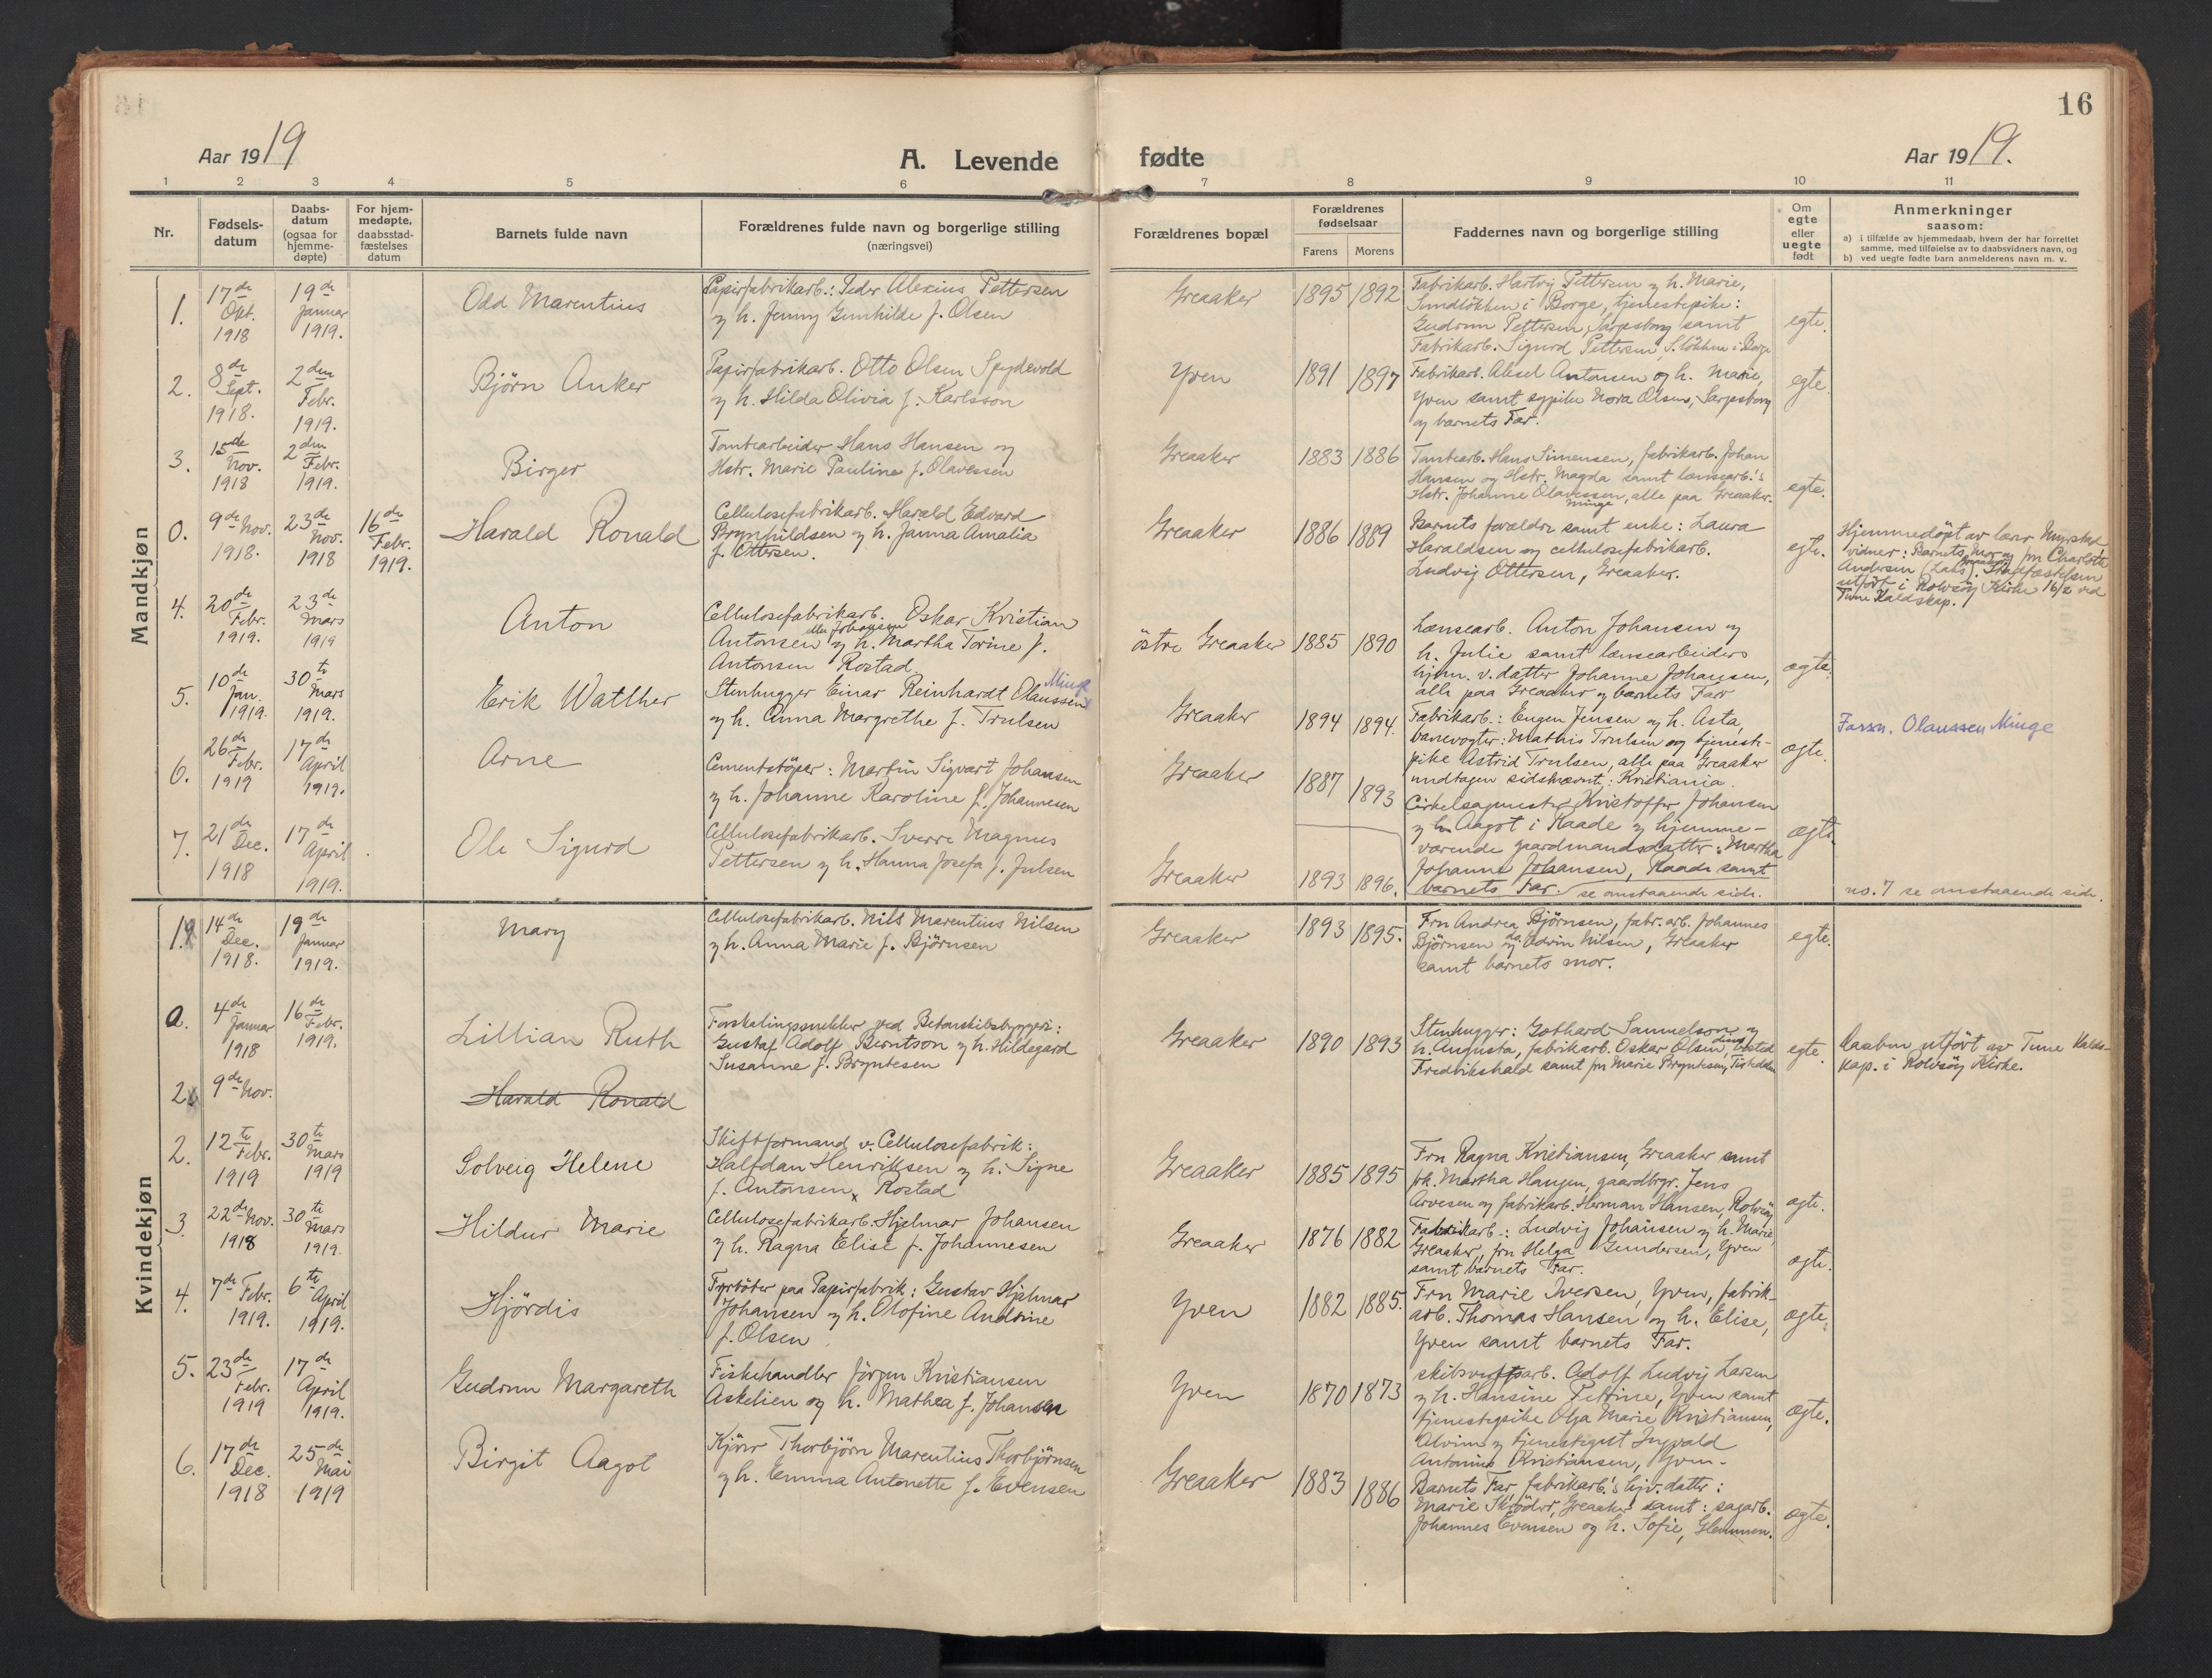 16
Aar 1919
A. Levende
fødte
Aar 1919.
1 2 3 4 5 6 7 8 9 10 11
Nr.
Fødsels-
datum
Daabs-
datum
(ogsaa for
hjemme-
døpte)
For hjem-
medøpte,
daabsstad-
fæstelses
datum
Barnets fulde navn
Forældrenes fulde navn og borgerlige stilling
(næringsvei)
Forældrenes bopæl
Forældrenes
fødselsaar
Farens Morens
Faddernes navn og borgerlige stilling
Om
egte
eller
uegte
født
Anmerkninger
saasom:
a) i tilfælde av hjemmedaab, hvem der har forrettet
samme, med tilføielse av to daabsvidners navn, og
b) ved uegte fødte barn anmelderens navn m. v.
Mandkjøn
1.
17de
Okt.
1918
19de
Januar
1919.
Odd Marentius
Papirfabrikarb.: Peder Alexius Pettersen
og h. Jenny Gunhilde f. Olsen
Greaaker
1895 1892
Fabrikarb. Hartvig Pettersen og h. Marie,
Sundløkken i Borge, tjenestepike:
Gudrun Pettersen, Sarpsborg samt
Fabrikarb. Sigurd Pettersen, S.løkken i Borge
egte.
2.
8de
Sept.
1918.
2den
Febr.
1919.
Bjørn Anker
Papirfabrikarb. Otto Olsen Spydevold
og h. Hilda Olivia f. Karlsson
Yven
1891 1897
Fabrikarb. Aksel Antonsen og h. Marie,
Yven samt sypike Nora Olsen, Sarpsborg
og barnets Far.
egte
3.
15de
Nov.
1918
2den
Febr.
1919.
Birger
Tomtearbeider Hans Hansen og
Hstr. Marie Pauline f. Olavessen
Greaaker
1883 1886
Tomtearb. Hans Simensen, fabrikarb. Johan
Hansen og Hstr. Magda samt lænsearb.'s
Hstr. Johanne Olavessen, alle paa Greaaker.
Minge
egte.
0.
9de Nov.
1918.
23de
Nov.
1918
16de
Febr.
1919.
Harald Ronald
Cellulosefabrikarb. Harald Edvard
Brynhildsen og h. Janna Amalia
f. Ottersen.
Greaaker
1886 1889
Barnets forældre samt enke: Laura
Haraldsen og cellulosefabrikarb.
Ludvig Ottersen, Greaaker.
egte.
Hjemmedøpt av lærer Myrstad
vidner: Barnets Mor og fru Charlotte
Andersen (Lars). Stadfæstelsen
utført i Rolvsøy Kirke 16/2 ved
Tune Kaldskap.
4.
20de
Febr.
1919.
23de
Mars
1919
Anton
Cellulosefabrikarb. Oskar Kristian
Antonsen eller Johansen og h. Martha Torine f.
Antonsen Rostad
østre Greaaker
1885 1890
Lænsearb. Anton Johansen og
h. Julie samt lænsearbeiders
hjem. v. datter Johanne Johansen,
alle paa Greaaker og barnets Far
ægte.
5.
10de
Jan.
1919.
30te
Mars
1919.
Erik Walther
Stenhugger Einar Reinhardt Olaussen Minge
og h. Anna Margrethe f. Trulsen
Greaaker
1894 1894.
Fabrikarb.: Eugen Jensen og h. Asta,
banevogter: Mathis Trulsen og tjeneste-
pike Astrid Trulsen, alle paa Greaaker
undtagen sidstnævnte: Kristiania.
ægte.
Farsn. Olaussen Minge
6.
26de
Febr.
1919
17de
April
1919.
Arne
Cementstøper: Martin Sigvart Johansen
og h. Johanne Karoline f. Johannesen
Greaaker
1887 1893
Cirkelsagmester Kristoffer Johansen
og h. Aagot i Raade og hjemme-
værende gaardmandsdatter: Martha
Johanne Johansen, Raade samt
barnets Far.
ægte.
7.
21de
Dec.
1918
17de
April
1919.
Ole Sigurd
Cellulosefabrikarb. Sverre Magnus
Pettersen og h. Hanna Josefa f. Julsen
Greaaker
1893 1896.
se omstaaende side.
no. 7 se omstaaende side.
Kvindekjøn
1.
14de
Dec.
1918.
19de
Januar
1919.
Mary
Cellulosefabrikarb. Nils Marentius Nilsen
og h. Anna Marie f. Bjørnsen
Greaaker
1893 1895.
Fru Andrea Bjørnsen, fabr.arb. Johannes
Bjørnsen og do. Edvin Nilsen, Greaaker
samt barnets mor.
egte.
0.
4de
Januar
1918
16de
Febr.
1919.
Lillian Ruth
Forskalingssnekker ved Betonskibsbyggeri:
Gustaf Adolf Berntson og h. Hildegard
Susanne f. Bryntesen
Greaaker
1890 1893
Stenhugger: Gothard Samuelson og
h. Augusta, fabrikarb. Oskar Olsen,
Fredrikshald samt fru Marie Bryntesen, Tistedalen
egte.
Daaben utført av Tune Kalds-
kap. i Rolvsøy Kirke.
2
9de Nov.
Harald Ronald
2.
12te
Febr.
1919
30te
Mars
1919
Solveig Helene
Skiftformand v. Cellulosefabrik:
Halfdan Henriksen og h. Signe
f. Antonsen Rostad
Greaaker
1885 1895
Fru Ragna Kristiansen, Greaaker samt
frk. Martha Haugen, gaardbrgr. Jens
Arvesen og fabrikarb. Herman Hansen, Rolvsøy
ægte.
3
22de Nov.
1918
30te
Mars
1919.
Hildur Marie
Cellulosefabrikarb. Hjelmar Johansen
og h. Ragna Elise f. Johannesen
Greaaker
1876 1882
Fabrikarb.: Ludvig Johansen og h. Marie,
Greaaker, fru Helga Gundersen, Yven
samt barnets Far.
ægte.
4.
7de Febr.
1919.
6te
April
1919.
Hjördis
Fyrbøter paa Papirfabrik: Gustav Hjelmar
Johansen og h. Olofine Andrine
f. Olsen
Yven
1882 1885.
Fru Marie Iversen, Yven, fabrik-
arb. Thomas Hansen og h. Elise,
Yven samt barnets Far.
ægte.
5.
23de
Febr.
1919
17de
April
1919.
Gudrun Margareth
Fiskehandler Jørgen Kristiansen
Askelien og h. Mathea f. Johansen
Yven
1870 1873
skibsverftsarb. Adolf Ludvig Larsen
og h. Hansine Petrine, Yven samt
tjenestepike Olga Marie Kristiansen,
Alvim og tjenestegut Ingvald
Antonius Kristiansen, Yven.
ægte.
6.
17de
Dec.
1918
25de
Mai
1919
Birgit Aagot
Kjører Thorbjørn Marentius Thorbjørnsen
og h. Emma Antonette f. Evensen
Greaaker
1883 1886
Barnets Far, fabrikarb.'s hjv. datter:
Marie Skrøder, Greaaker samt: sagarb.
Johannes Evensen og h. Sofie, Glemmen.
ægte.